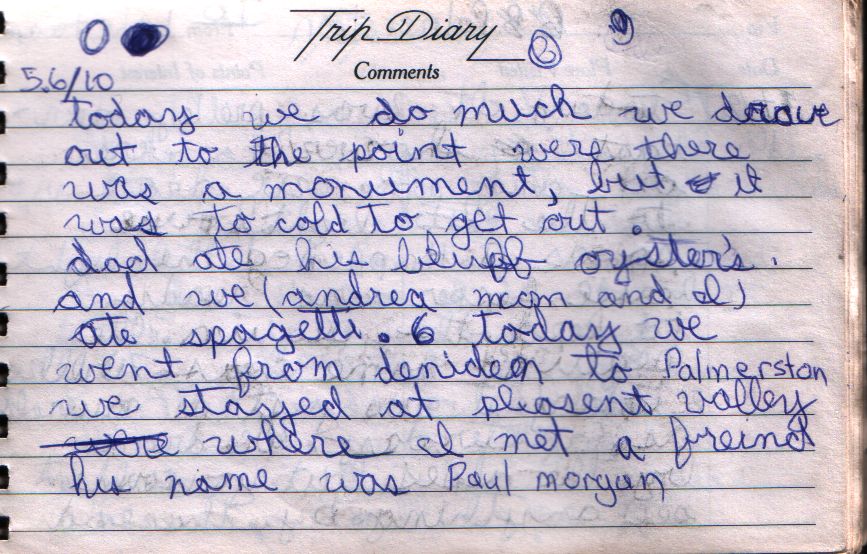 Trip Diary
Comments
5.6/10
today we do much we drove
out to the point were there
was a monument, but it
was to cold to get out.
dad ate his bluff oyster's.
and we (andrea mom and I)
ate spagetti. 6 today we
went from deniden to Palmerston
we stayed at pleasent valley
where I met a freind
his name was Paul morgan